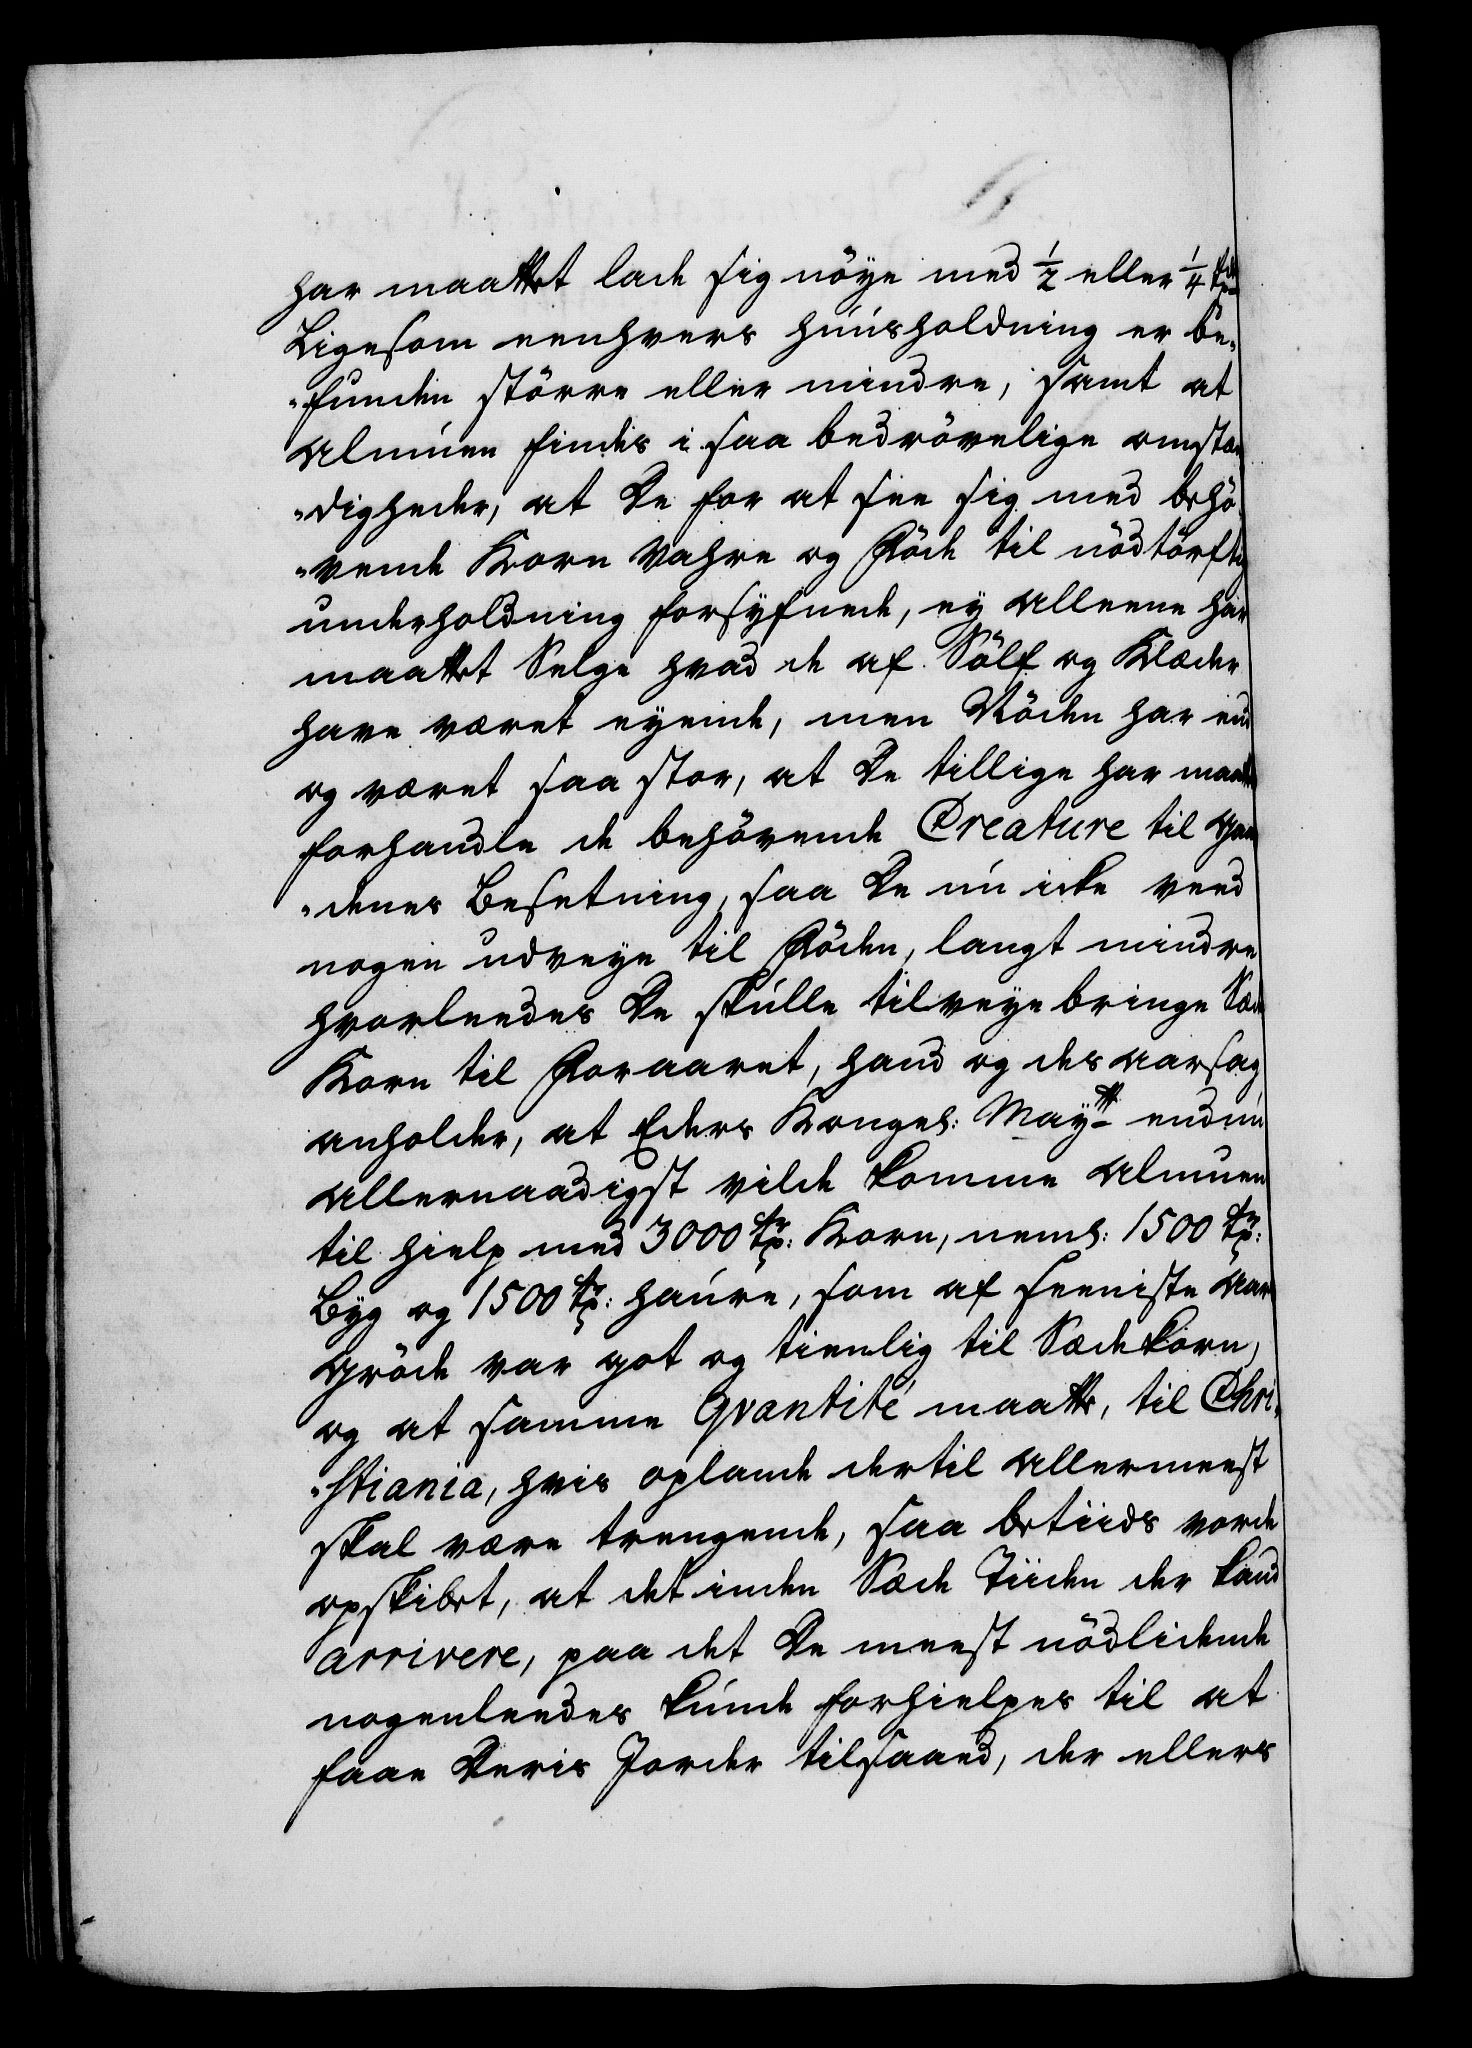 har maattet lade sig nöye med ½ eller ¼ tde
Ligesom eenhvers huusholdning er be-
-funden större eller mindre, samt at
Almuen findes i saa bedrövelige omstæn
-digheder, at De for at see sig med behö-
-vende Korn Vahre og Föde til nödtörftig
underholdning forsyfnede, ey alleene har
maattet Selge hvad de af Sölf og Klæder
have været eyende, men Nöden har end
og været saa stor, at De tillige har maatt
forhandle de behövende Creature til gaar
-denes Besetning, saa De nu icke veed
nogen udveye til Föden, langt mindre
hvorleedes De skulle tilveyebringe Sæde
Korn til Foraaret, hand og des aarsag
anholder, at Eders Kongel: Mayt endnu
allernaadigst vilde komme Almuen
til hielp med 3000 tr: Korn, neml: 1500 tr:
Byg og 1500 tr: haure, som af seeniste aars
gröde var got og tienlig til Sædekorn,
og at samme Qvantité maatte, til Chri-
-stiania, hvis oplande dertil allermeest
skal være trengende, saa betiids vorde
opskibet, at det inden Sæde Tiiden der kand
arrivere, paa det De meest nödlidende
nogenleedes kunde forhielpes til at
faae Deris Jorder tilsaaed, der ellers